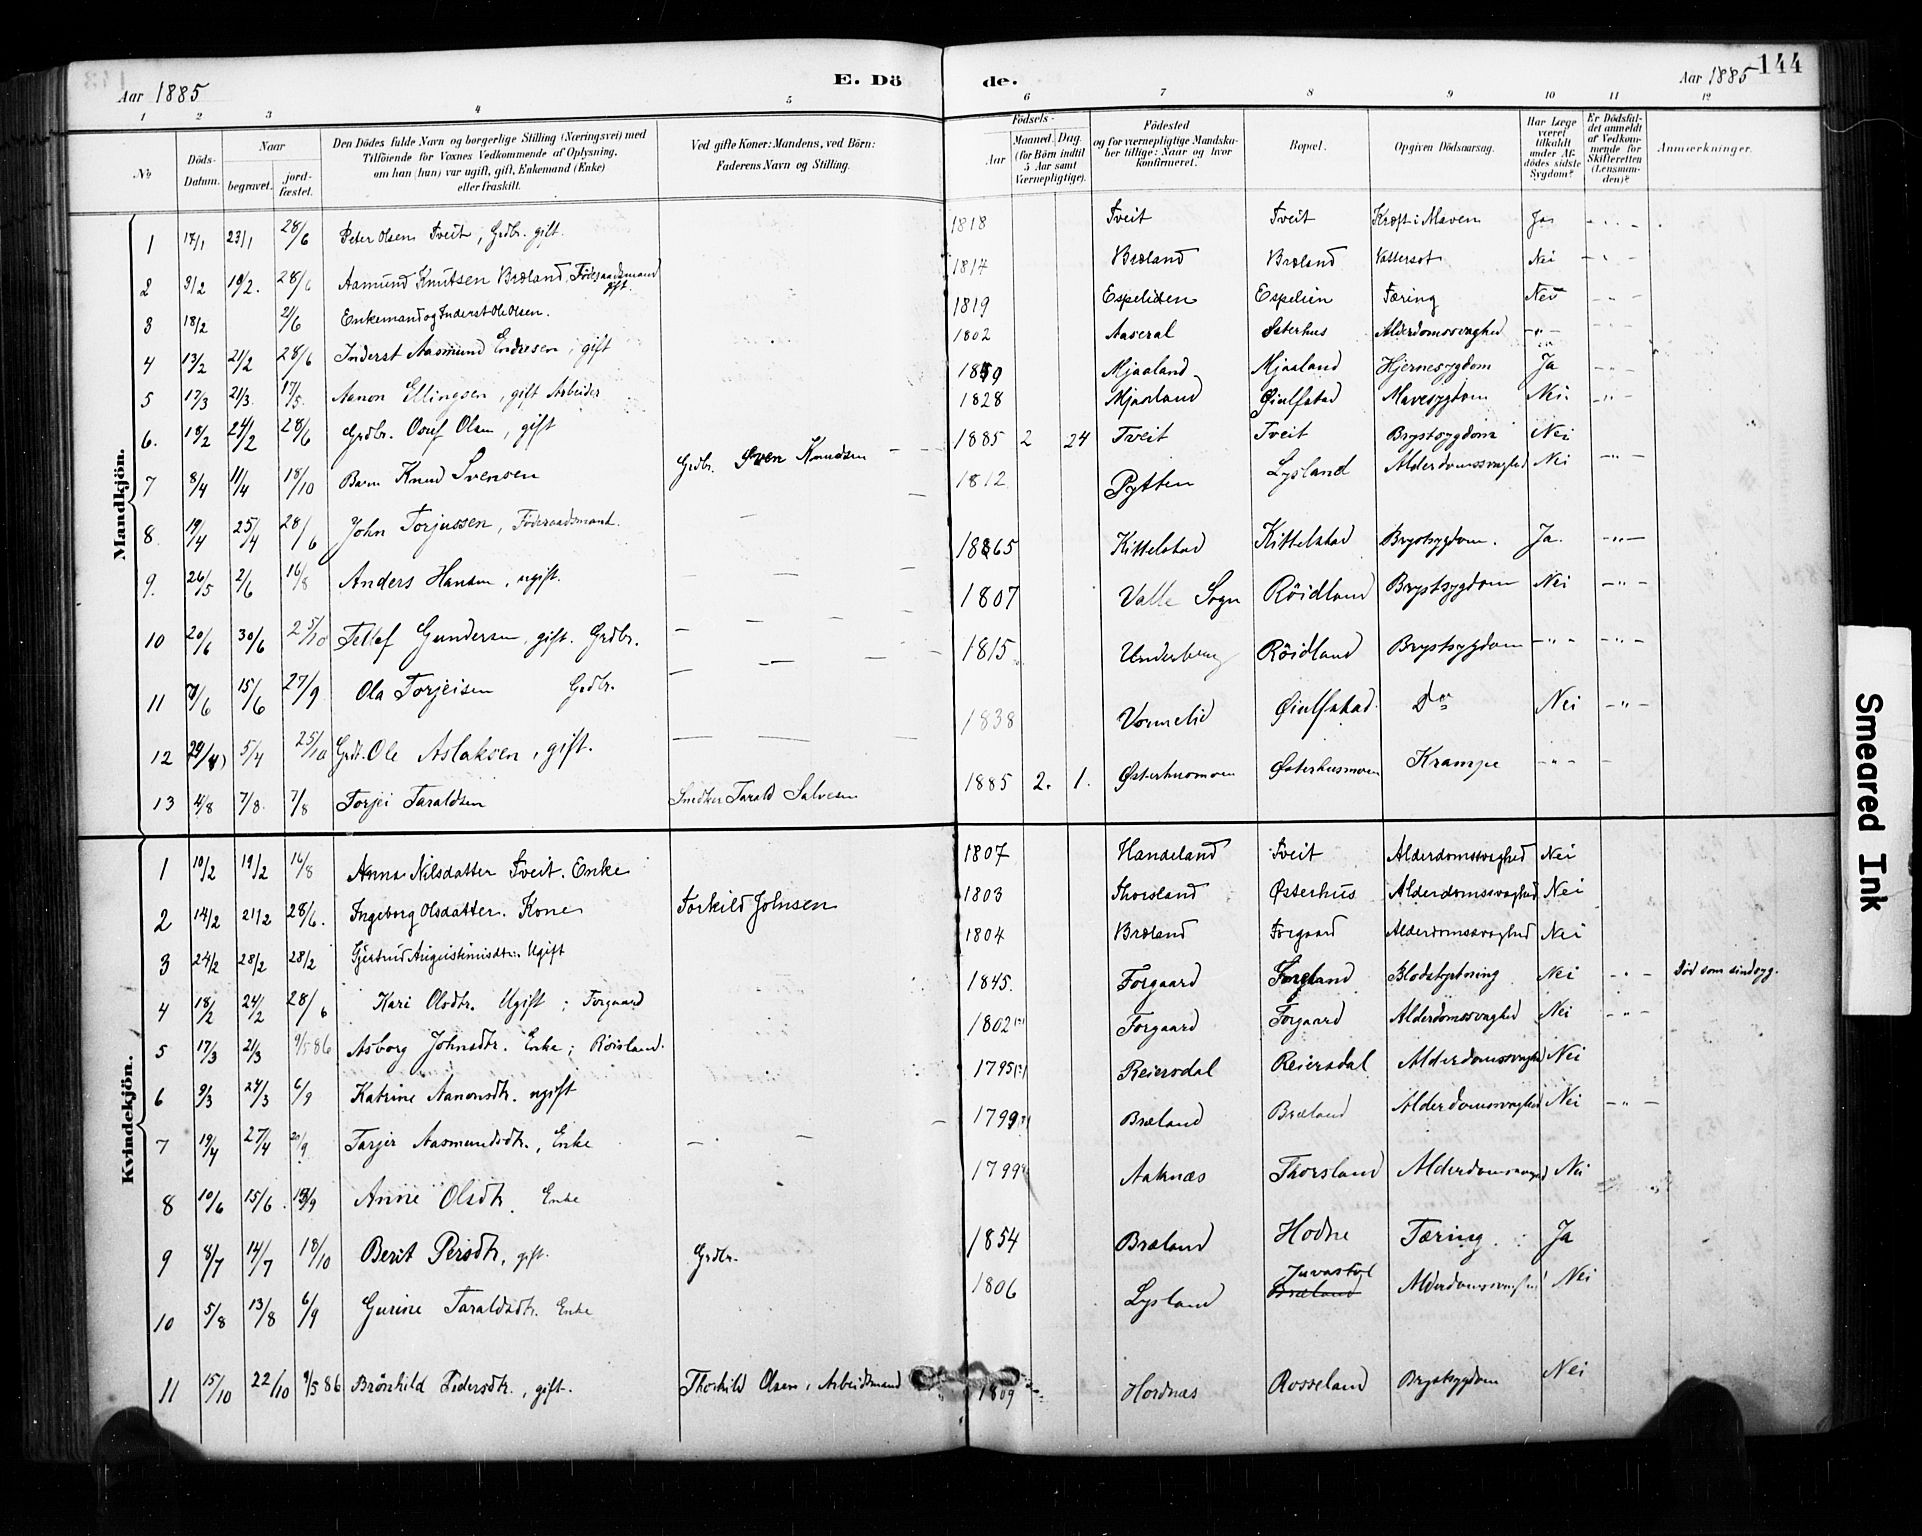 144
Aar 1885
E. Dö
de.
Aar 1885
1 2 3 4 5 6 7 8 9 10 11 12
No
Döds-Datum.
Naar
begravet.
jord-fæstet.
Den Dödes fulde Navn og borgerlige Stilling (Næringsvei) med
Tilföiende for Voxnes Vedkommende af Oplysning,
om han (hun) var ugift, gift, Enkemand (Enke)
eller fraskilt.
Ved gifte Koner: Mandens, ved Börn:
Faderens Navn og Stilling.
Födsels-
Aar
Maaned. Dag.
(for Börn indtil
5 Aar samt
Værnepligtige).
Födested
og for værnepligtige Mandska-
ber tillige: Naar og hvor
konfirmeret.
Bopæl.
Opgiven Dödsaarsag.
Har Læge
været
tilkaldt
under Af-
dödes sidste
Sygdom?
Er Dödsfal-
det anmeldt
af Vedkom-
mende for
Skifteretten
(Lensman-
den)?
Anmærkninger.
Mandkjön.
1 17/1 23/1 28/6 Peter Olsen Tveit, Grdbr. gift. 1818 Tveit Tveit Kræft i Maven Ja
2 3/2 10/2. 28/6 Aamund Knutsen Bræland, Föderaadsmand gift. 1817 Bræland Bræland Vattersot Nei
3 18/2 21/6 Enkemand og Inderst Ole Olsen. 1819 Espelien Espelien Tæring Nei
4 13/2 21/2 28/6 Inderst Aasmund Endresen, gift 1802 Aaseral Østerhus Alderdomssvaghed - " -
5 17/3 21/3. 17/5. Aanon Ellingsen, gift Arbeider Mjaaland Mjaaland Hjernesygdom Ja
6. 18/2 24/2 28/6 Grdbr. Osuf Olsen, gift 1828 Mjaaland Øiulfstad Mavesygdom Nei
7 8/4 11/4 18/10 Barn Knud Svensen Grdbr. Sven Knudsen 1885 2 24 Tveit Tveit Brystsygdom Nei
8. 19/4 25/4 28/6 John Torjussen, Föderaadsmand. 1812 Pytten Lysland Alderdomssvaghed Nei
9. 26/5 2/6 16/8 Anders Hansen, ugift. 1865 Kittelstad Kittelstad Brystsygdom. Ja.
10 20/6 30/6 25/10 Tellef Gundersen, gift. Grdbr. 1807 Valle Sogn Röidland Brystsygdom Nei
11 7/6 15/6 27/9 Ola Torjeisen Grdbr. 1815 Underberg Röidland Brystsygdom - " -
12 5/4 25/10 Grdbr. Ole Aslaksen, gift. 1838 Vormelid Øiulfstad. Do Nei
13 4/8 7/8. 7/8 Torjei Taraldsen Snedker Tarald Salvesen 1885 2. 1. Østerhusmoen Østerhusmoen Krampe - " -
Kvindekjön.
1 10/2 19/2 16/8 Anna Nilsdatter Tveit. Enke 1807 Handeland Tveit Alderdomssvaghed Nei
2 14/2 21/2 28/6. Ingeborg Olsdatter. Kone Torkild Johnsen 1803 Thorsland Østerhus Alderdomssvaghed Nei
3 24/2 28/2 28/2 Gjertrud Augustinusdtr. Ugift 1804 Bræland Forgaard Alderdomssvaghed Nei
4 18/2 24/2 28/6 Kari Olsdtr. Ugift; Forgaard 1845. Forgaard Blodstyrtning Nei - " - Död som sindsyg.
5 17/3 21/3 9/5 86 Asborg Johnsdtr. Enke; Röisland. 1802 Forgaard Forgaard Alderdomssvaghed Nei - " -
6 9/3 24/3 6/9 Katrine Aanonsdtr. ugift 1795 Reiersdal Reiersdal Alderdomssvaghed Nei
7 19/4 27/4 20/9 Tarjer Aasmundsdtr., Enke 1799 Bræland Bræland Alderdomssvaghed Nei - " -
8 10/6 15/6. 13/9 Anne Olsdtr. Enke 1799 Aaknæs Thorsland Alderdomssvaghed Nei
9 8/7 14/7 18/10 Berit Persdtr, gift. Grdbr. 1854 Bræland Hodne Tæring. Ja
10 5/8 13/8 6/9 Gurine Taraldsdtr. Enke 1806 Lysland Juvastöl Bræland Alderdomssvaghed Nei
11 15/10 22/10 9/5 86 Brönhild Fidersdtr., gift. Thorkild Olsen, Arbeidsmand 1809 Hordnæs Rosseland Brystsygdom Nei
Smeared Ink